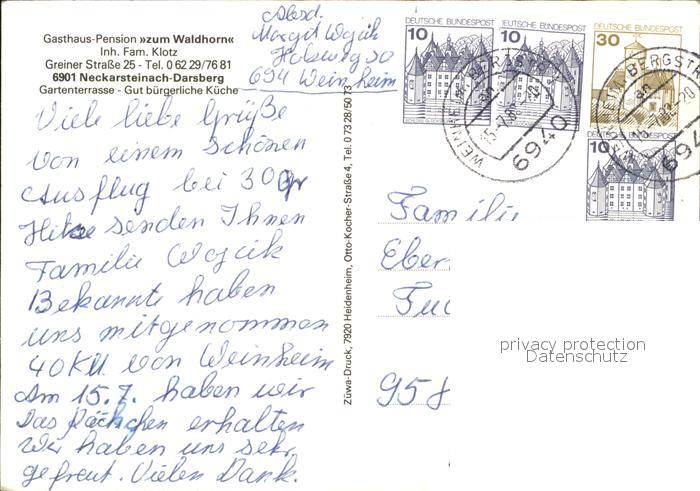 Gasthaus-Pension »zum Waldhorn«
Inh. Fam. Klotz
Greiner Straße 25 - Tel. 0 62 29/76 81
6901 Neckarsteinach-Darsberg
Gartenterrasse - Gut bürgerliche Küche
Absd.
Margit Wojcik
694 Weinheim
Viele liebe Grüße
von einem schönen
Ausflug bei 30 gr
Hitze senden Ihnen
Familie Wojcik
Bekannte haben
uns mitgenommen
40 KM von Weinheim
Am 15.7. haben wir
Das Päckchen erhalten
Wir haben uns sehr
gefreut. Vielen Dank.
Züwa-Druck, 7920 Heidenheim, Otto-Kocher-Straße 4, Tel. 0 73 28/50 73
DEUTSCHE BUNDESPOST
10
DEUTSCHE BUNDESPOST
10
DEUTSCHE BUNDESPOST
30
10
6940
694
Familie
Eber
958
privacy protection
Datenschutz